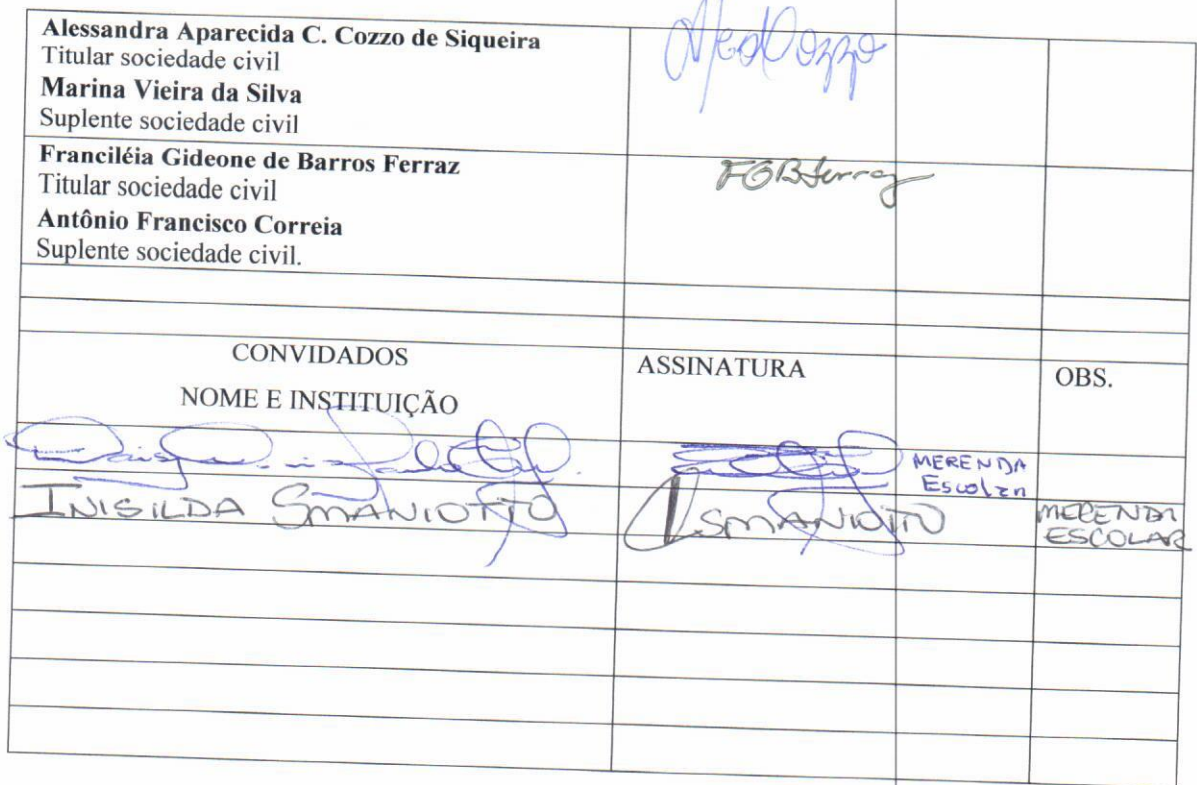 Alessandra Aparecida C. Cozzo de Siqueira
Titular sociedade civil
Marina Vieira da Silva
Suplente sociedade civil
Cozzo
Franciléia Gideone de Barros Ferraz
Titular sociedade civil
Antônio Francisco Correia
Suplente sociedade civil.
FGBferraz
CONVIDADOS
NOME E INSTITUIÇÃO
ASSINATURA
OBS.
MERENDA
Escolar
INISILDA SMANIOTTO
ISMANIOTTO
MERENDA
ESCOLAR